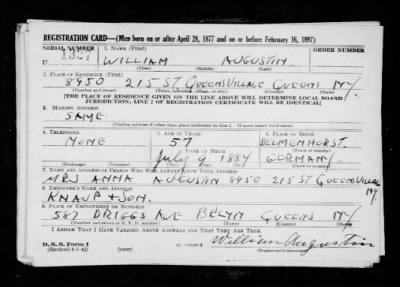 REGISTRATION CARD—(Men born on or after April 28, 1877 and on or before February 16, 1897)
SERIAL NUMBER 1. NAME (Print) ORDER NUMBER
WILLIAM AUGUSTIN
(First) (Middle) (Last)
2. PLACE OF RESIDENCE (Print)
8950 215 ST QUEENSVILLAGE QUEENS NY.
(Number and street) (Town, township, village, or city) (County) (State)
[THE PLACE OF RESIDENCE GIVEN ON THE LINE ABOVE WILL DETERMINE LOCAL BOARD
JURISDICTION; LINE 2 OF REGISTRATION CERTIFICATE WILL BE IDENTICAL]
3. MAILING ADDRESS
SAME.
[Mailing address if other than place indicated on line 2. If same insert word same]
4. TELEPHONE 5. AGE IN YEARS 6. PLACE OF BIRTH
NONE 57 DELMENHORST.
DATE OF BIRTH (Town or county)
July 9 1884 GERMANY.
(Exchange) (Number) (Mo.) (Day) (Yr.) (State or country)
7. NAME AND ADDRESS OF PERSON WHO WILL ALWAYS KNOW YOUR ADDRESS
MRS ANNA AUGUSTIN 8950 215 ST QUEENSVILLAGE
NY.
8. EMPLOYER'S NAME AND ADDRESS
KNAUP + SON.
9. PLACE OF EMPLOYMENT OR BUSINESS
587 DRIGGS AVE BKLYN QUEENS NY
(Number and street or R. F. D. number) (Town) (County) (State)
I AFFIRM THAT I HAVE VERIFIED ABOVE ANSWERS AND THAT THEY ARE TRUE.
D. S. S. Form 1
(Revised 4-1-42) (over) William Augustin
(Registrant's signature)